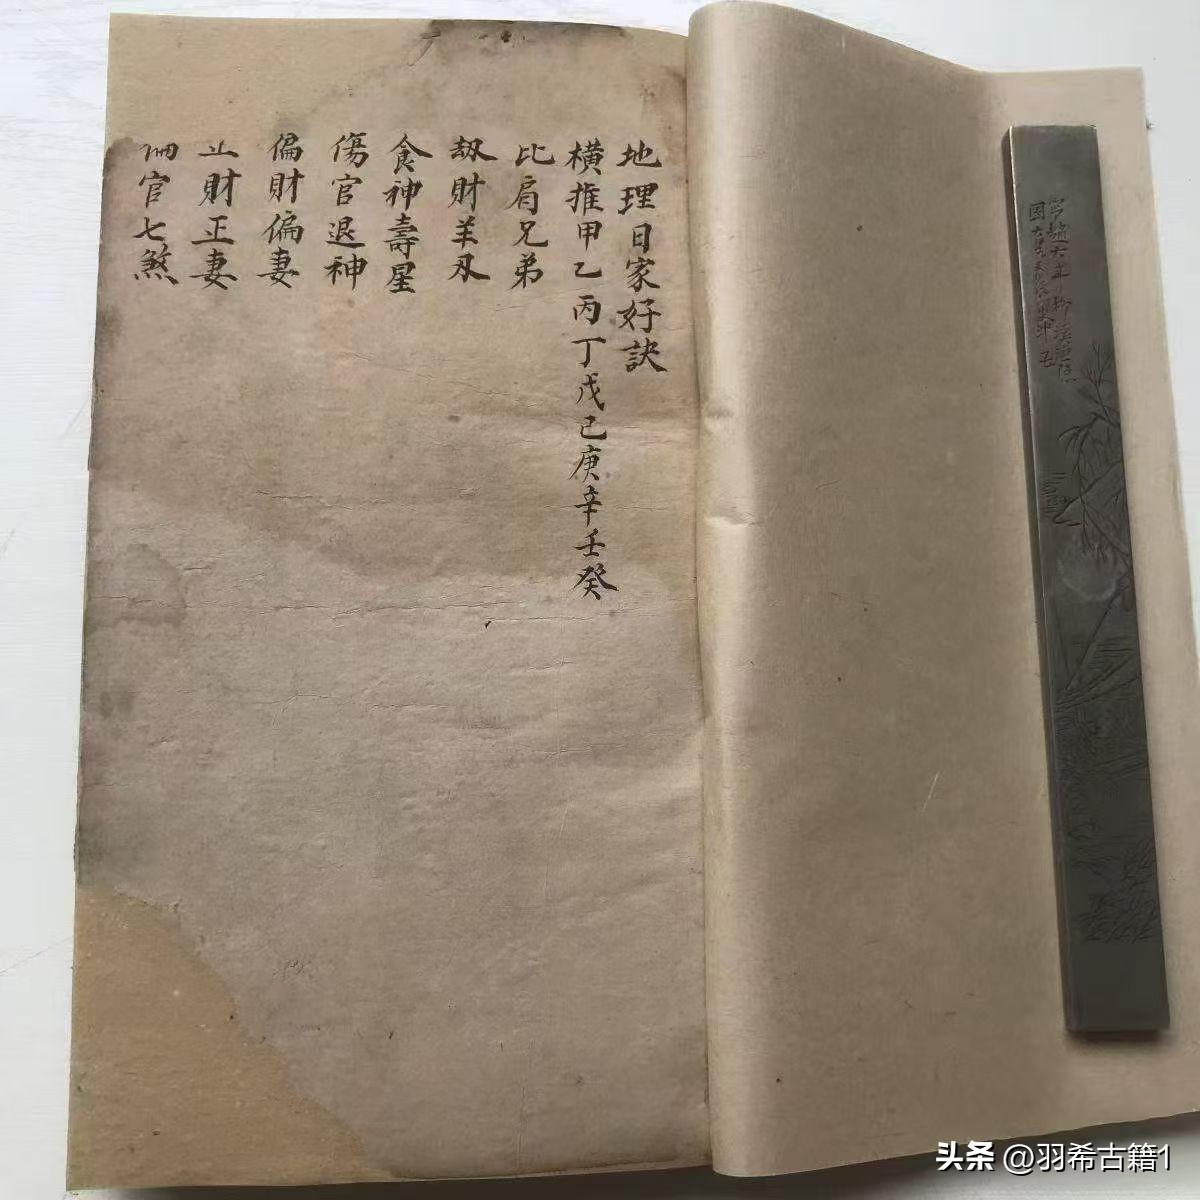 地理日家好訣
橫推甲乙丙丁戊己庚辛壬癸
比肩兄弟
劫財羊刃
食神壽星
傷官退神
偏財偏妻
正財正妻
官七煞
头条 @羽希古籍1